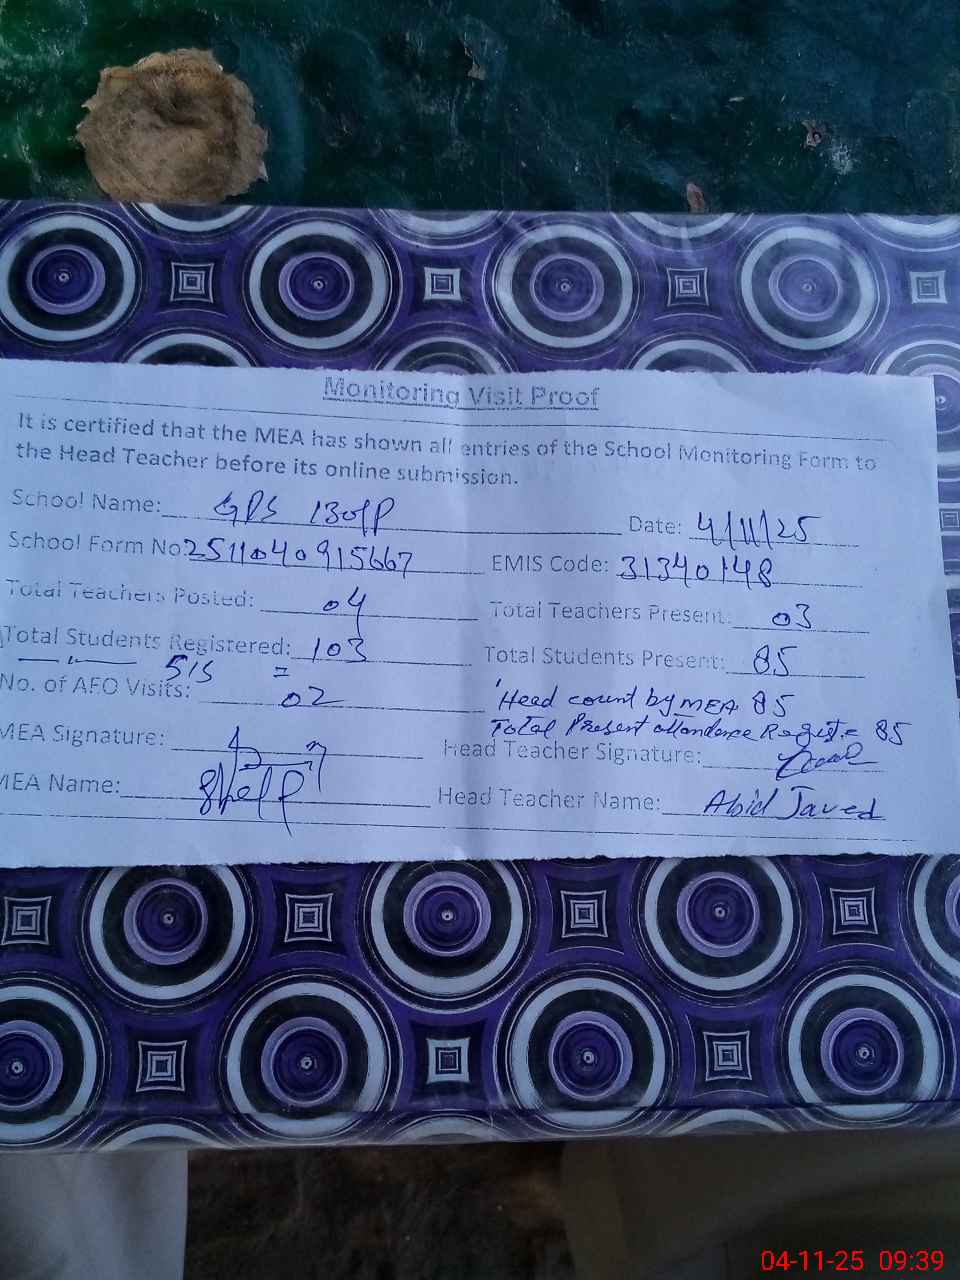 Monitoring Visit Proof
It is certified that the MEA has shown all entries of the School Monitoring Form to
the Head Teacher before its online submission.
School Name: GPS 130/P Date: 4/11/25
School Form No: 2511040915667 EMIS Code: 31340148
Total Teachers Posted: 04 Total Teachers Present: 03
Total Students Registered: 103 Total Students Present: 85
— " — SIS =
No. of AEO Visits: 02 Head count by MEA 85
Total Present attendance Regist = 85
MEA Signature: Head Teacher Signature:
MEA Name: Head Teacher Name: Abid Javed
04-11-25 09:39